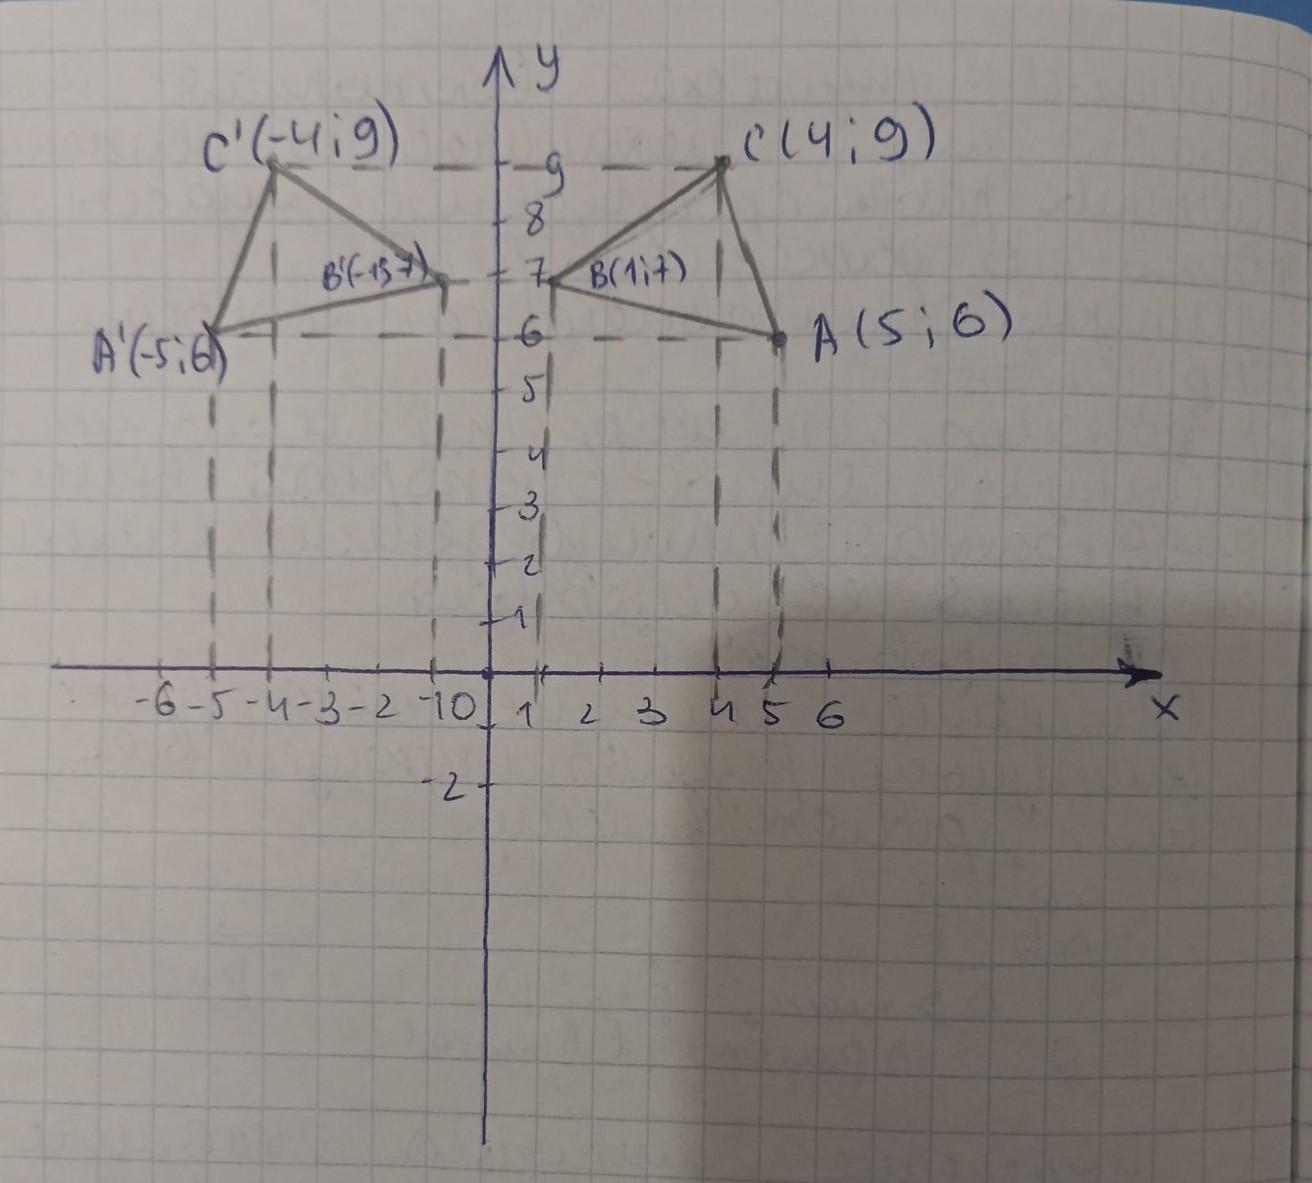 y
C'(-4;9)
9
C(4;9)
8
B'(-1;7)
7
B(1;7)
A'(-5;6)
6
A(5;6)
5
4
3
2
1
-6 -5 -4 -3 -2 -1 0 1 2 3 4 5 6 x
-2